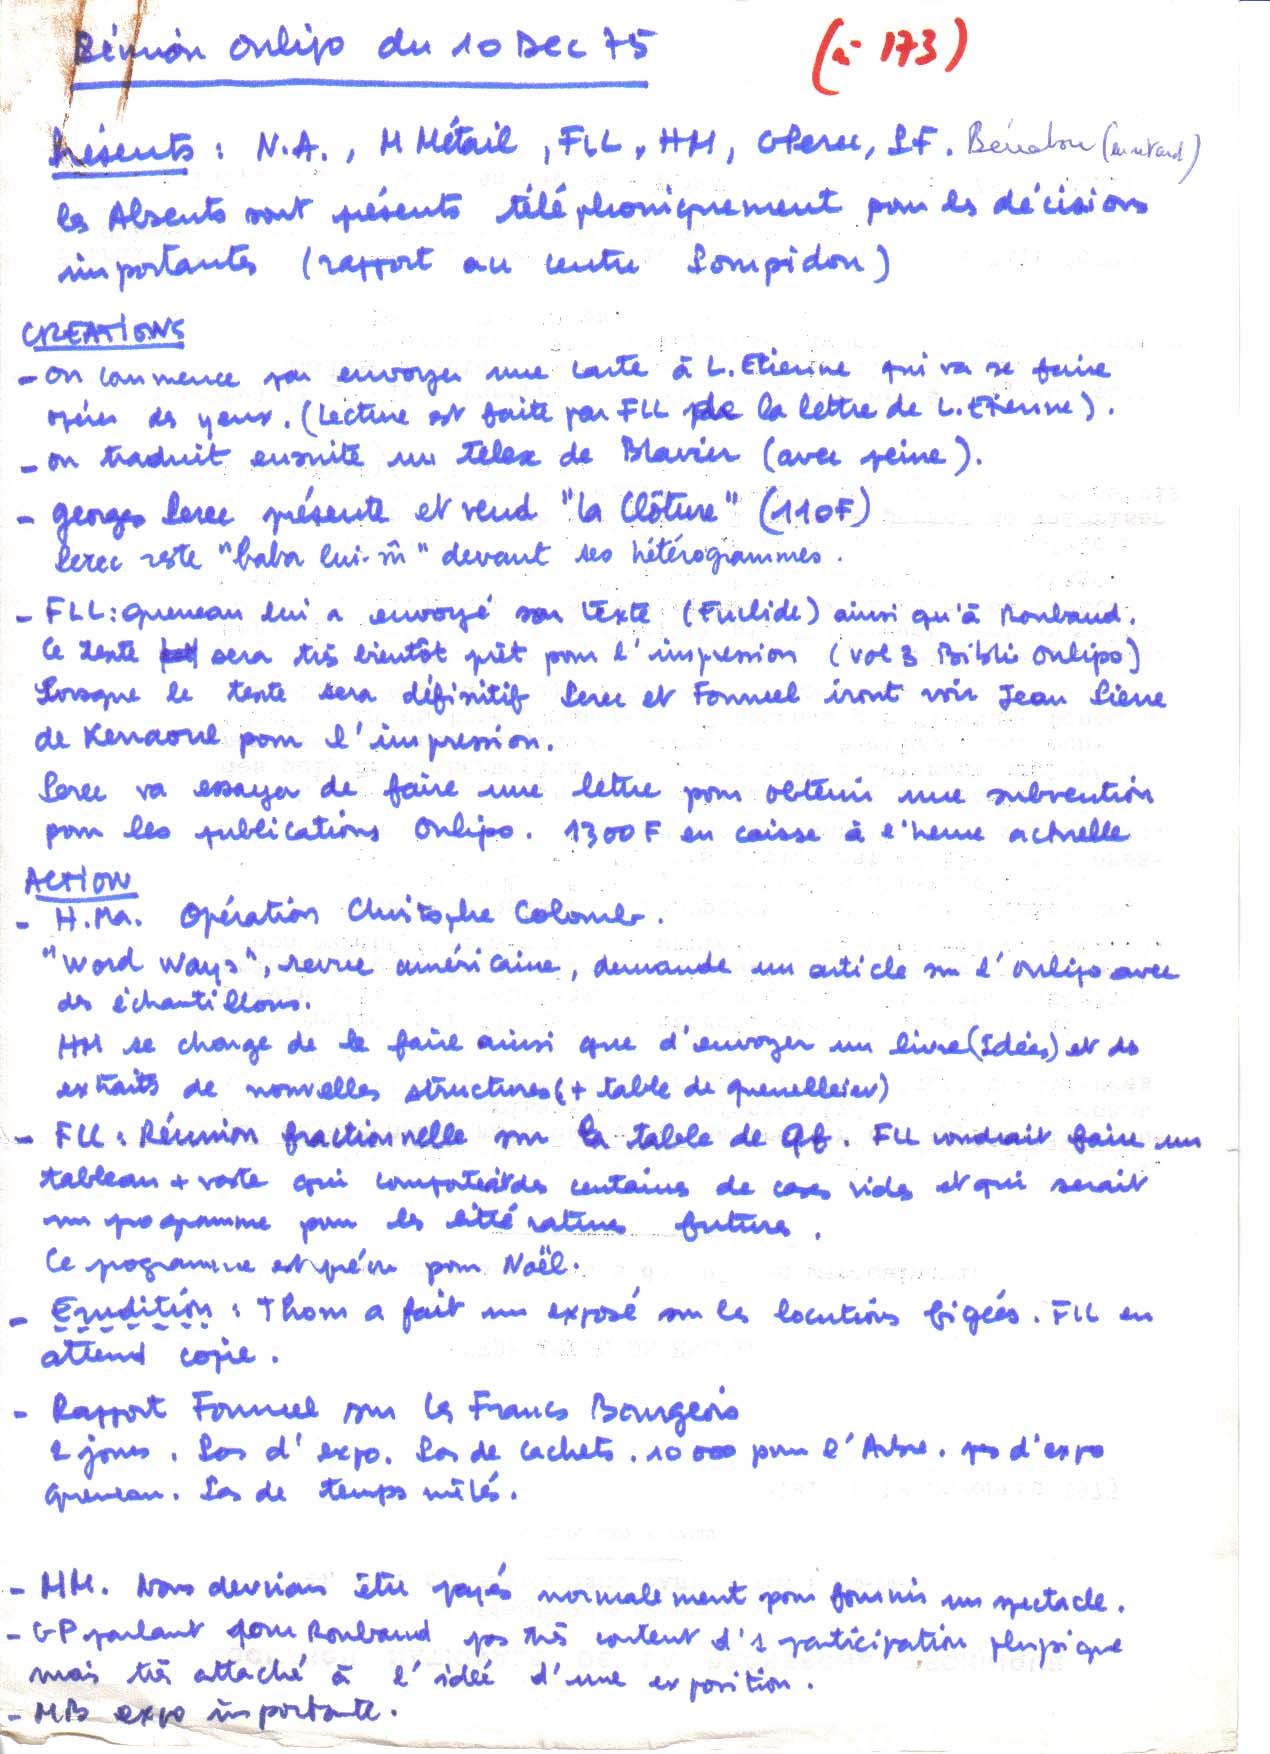 Réunion Oulipo du 10 Dec 75 (n° 173)
Présents : N.A., M Métail, FLL, HM, G Perec, PF. Bénabou (en retard)
les Absents sont présents téléphoniquement pour les décisions
importantes (rapport au centre Pompidou)
CREATIONS
- on commence par envoyer une carte à L. Etienne qui va se faire
opérer des yeux. (Lecture est faite par FLL de la lettre de L. Etienne).
- on traduit ensuite un telex de Blavier (avec peine).
- georges Perec présente et vend "la Clôture" (110F)
Perec reste "baba lui-m̂" devant ses hétérogrammes.
- FLL : Queneau lui a envoyé son texte (Euclide) ainsi qu'à Roubaud.
Ce texte sera très bientôt prêt pour l'impression (vol 3 Bibli Oulipo)
Lorsque le texte sera définitif Perec et Fournel iront voir Jean Pierre
de Kerraoul pour l'impression.
Perec va essayer de faire une lettre pour obtenir une subvention
pour les publications Oulipo. 1300F en caisse à l'heure actuelle
ACTION
- H.Ma. Opération Christophe Colomb.
"Word Ways", revue américaine, demande un article sur l'oulipo avec
des échantillons.
HM se charge de le faire ainsi que d'envoyer un livre (Idées) et des
extraits de nouvelles structures (+ table de quenelleiev)
- FLL : Réunion fractionnelle sur la table de Qf. FLL voudrait faire un
tableau + vaste qui comporterait des centaines de cases vides et qui serait
un programme pour les littératures futures.
Ce programme est prévu pour Noël.
- Erudition : Thom a fait un exposé sur les locutions figées. FLL en
attend copie.
- Rapport Fournel sur les Francs Bourgeois
2 jours. Pas d'expo. Pas de cachets. 10 000 pour l'Arbre. pas d'expo
Queneau. Pas de temps mêlés.
- MM. Nous devrions être payés normalement pour fournir un spectacle.
- GP parlant pour Roubaud pas très content d'1 participation physique
mais très attaché à l'idée d'une exposition.
- MB expo importante.